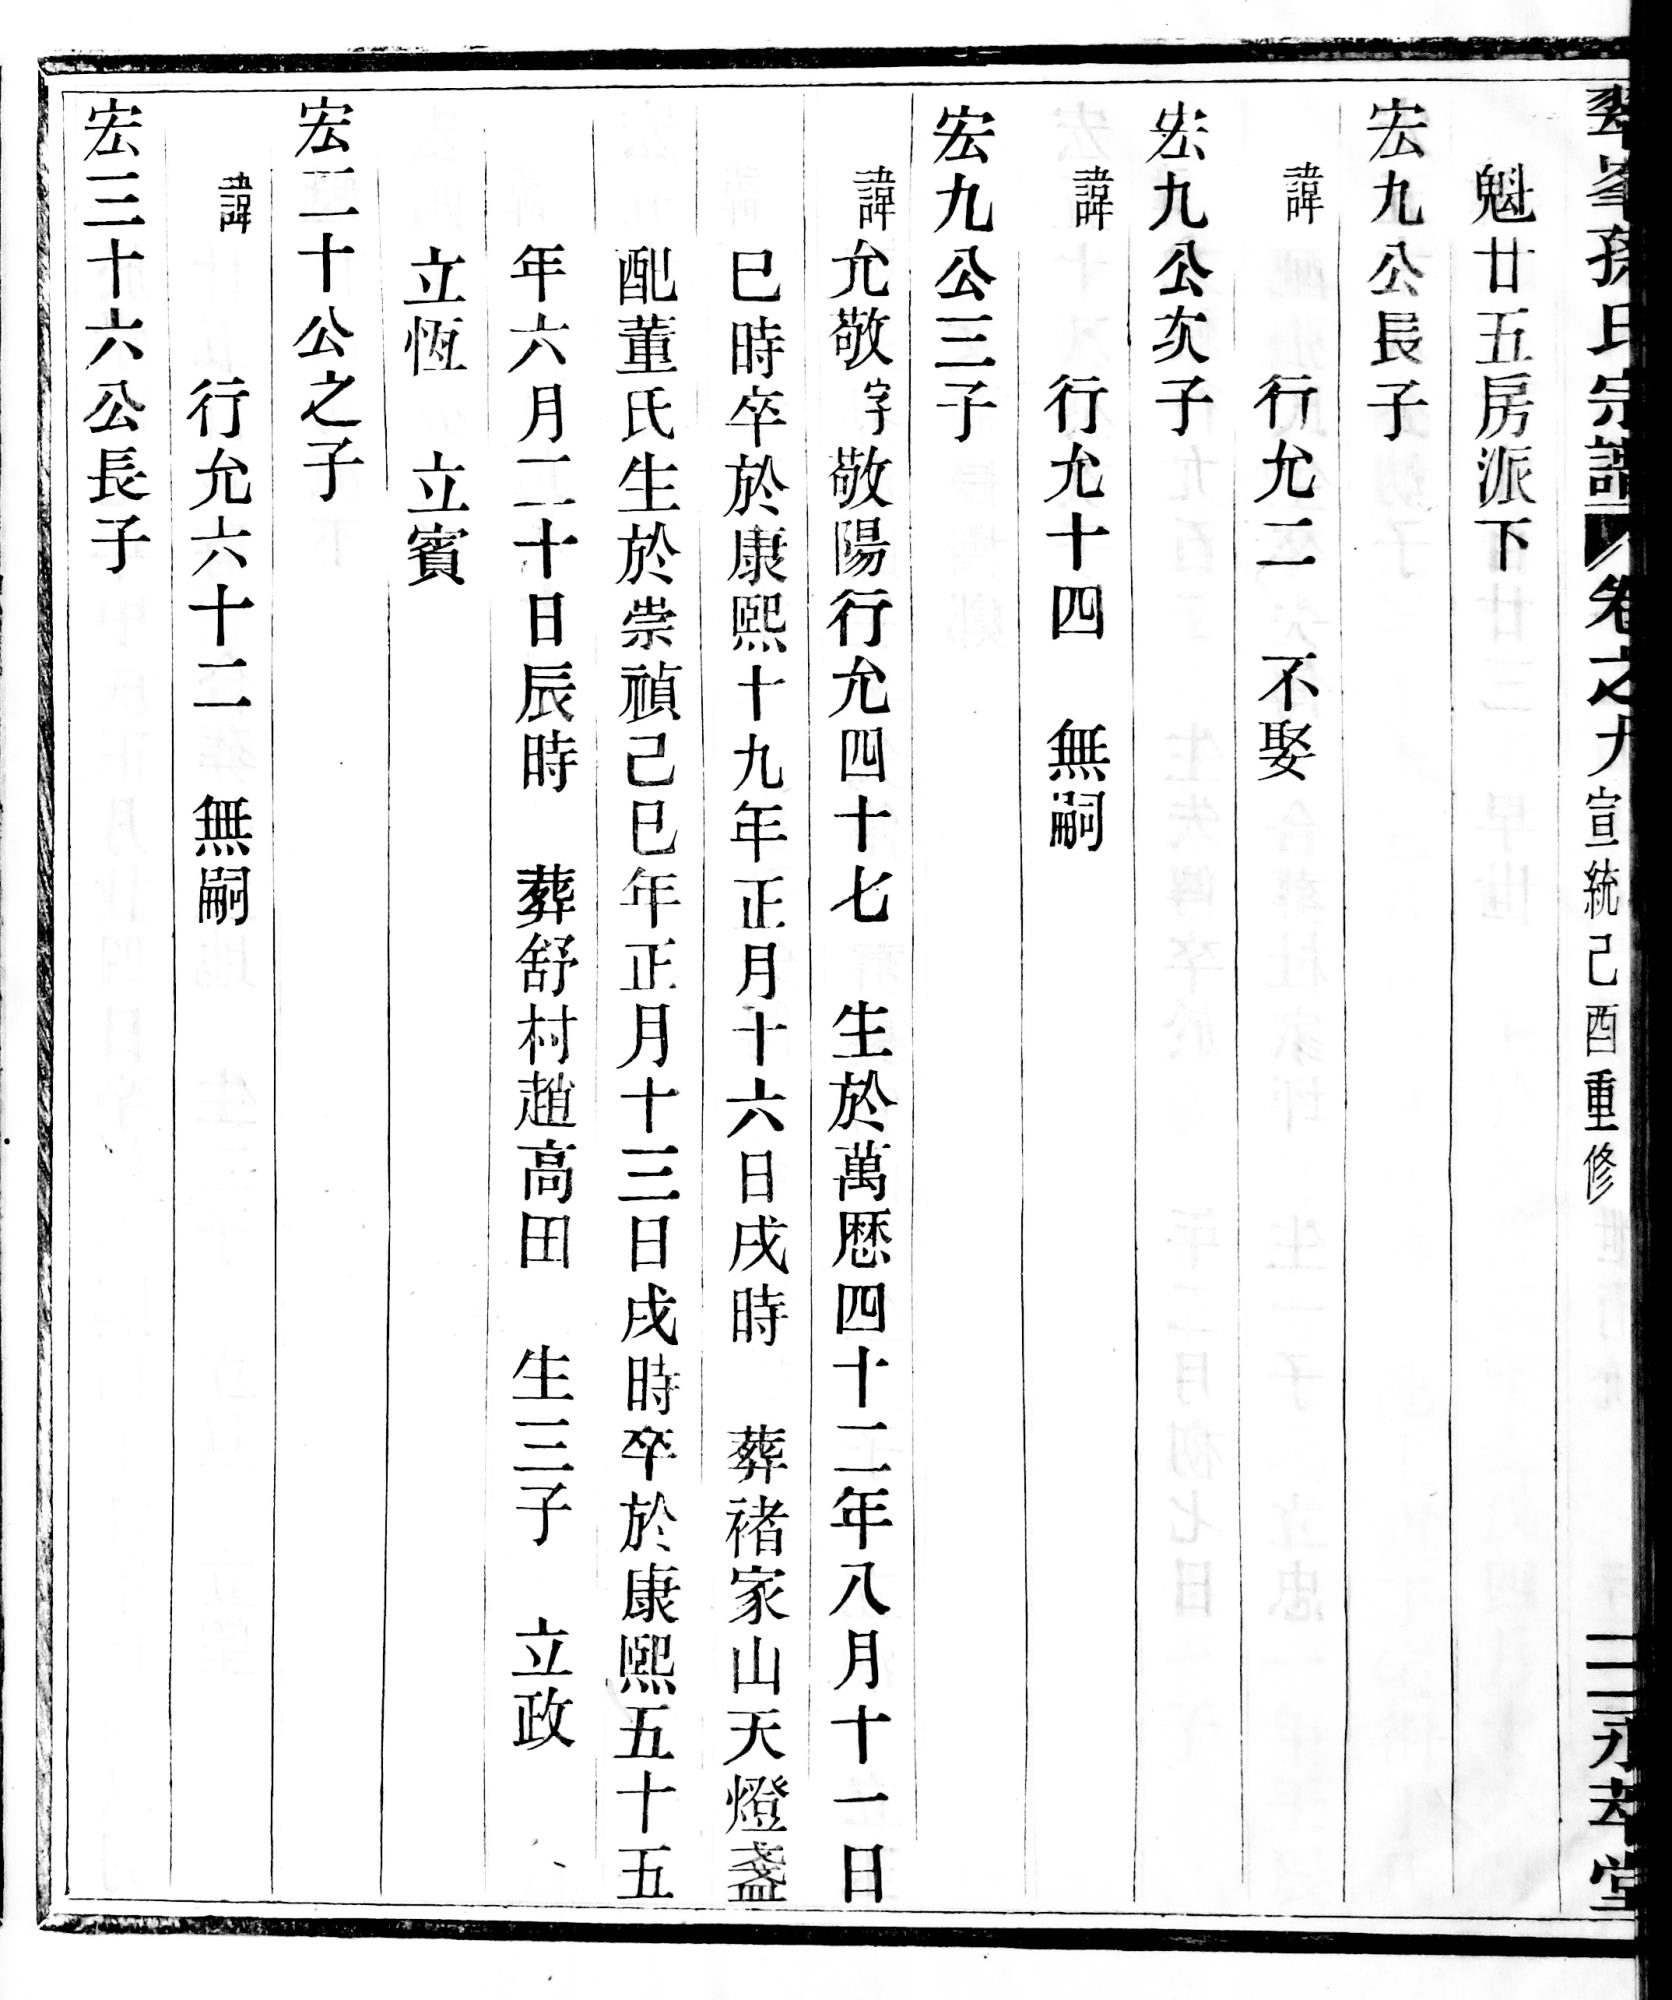 翠峯孫氏宗譜 卷之九 宣統己酉重修 二 永孝堂
魁廿五房派下
宏九公長子
諱 行允二 不娶
宏九公次子
諱 行允十四 無嗣
宏九公三子
諱允敬字敬陽行允四十七 生於萬歷四十二年八月十一日
巳時卒於康熙十九年正月十六日戌時 葬褚家山天燈盞
配董氏生於崇禎己巳年正月十三日戌時卒於康熙五十五
年六月二十日辰時 葬舒村趙高田 生三子 立政
立恆 立賓
宏二十公之子
諱 行允六十二 無嗣
宏三十六公長子